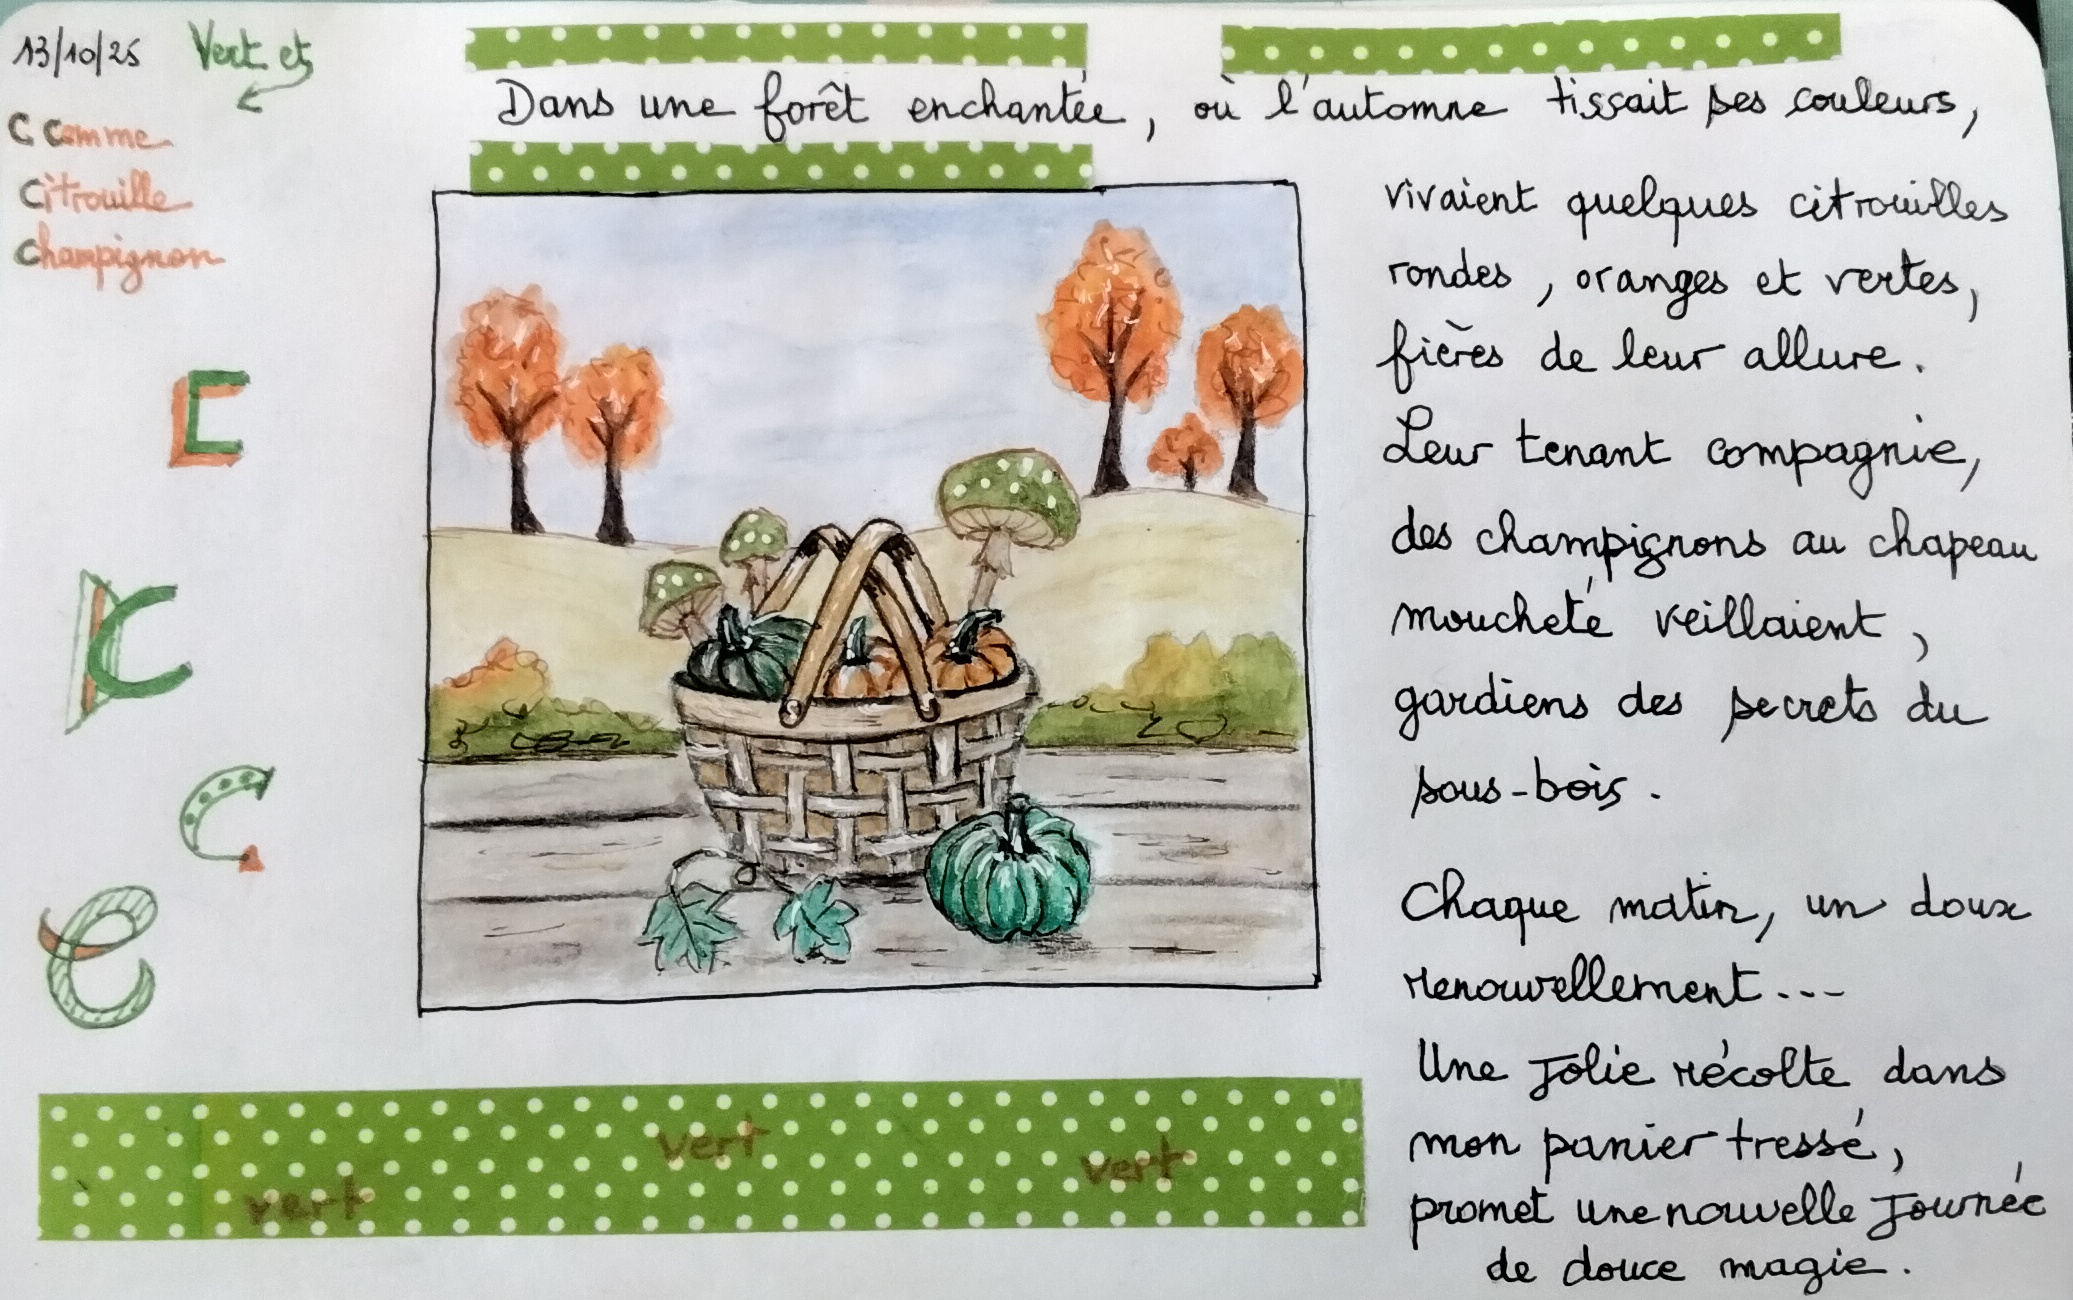 13/10/25 Vert et
C comme
Citrouille
Champignon
C
C
C
C
Dans une forêt enchantée, où l'automne tissait ses couleurs,
vivaient quelques citrouilles
rondes, oranges et vertes,
fières de leur allure.
Leur tenant compagnie,
des champignons au chapeau
moucheté veillaient,
gardiens des secrets du
sous-bois.
Chaque matin, un doux
renouvellement...
Une jolie récolte dans
mon panier tressé,
promet une nouvelle journée
de douce magie.
vert vert vert